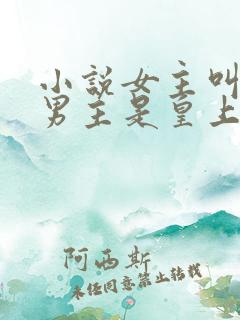 小説女主叫
男主是皇上
阿西斯
未经同意禁止转载